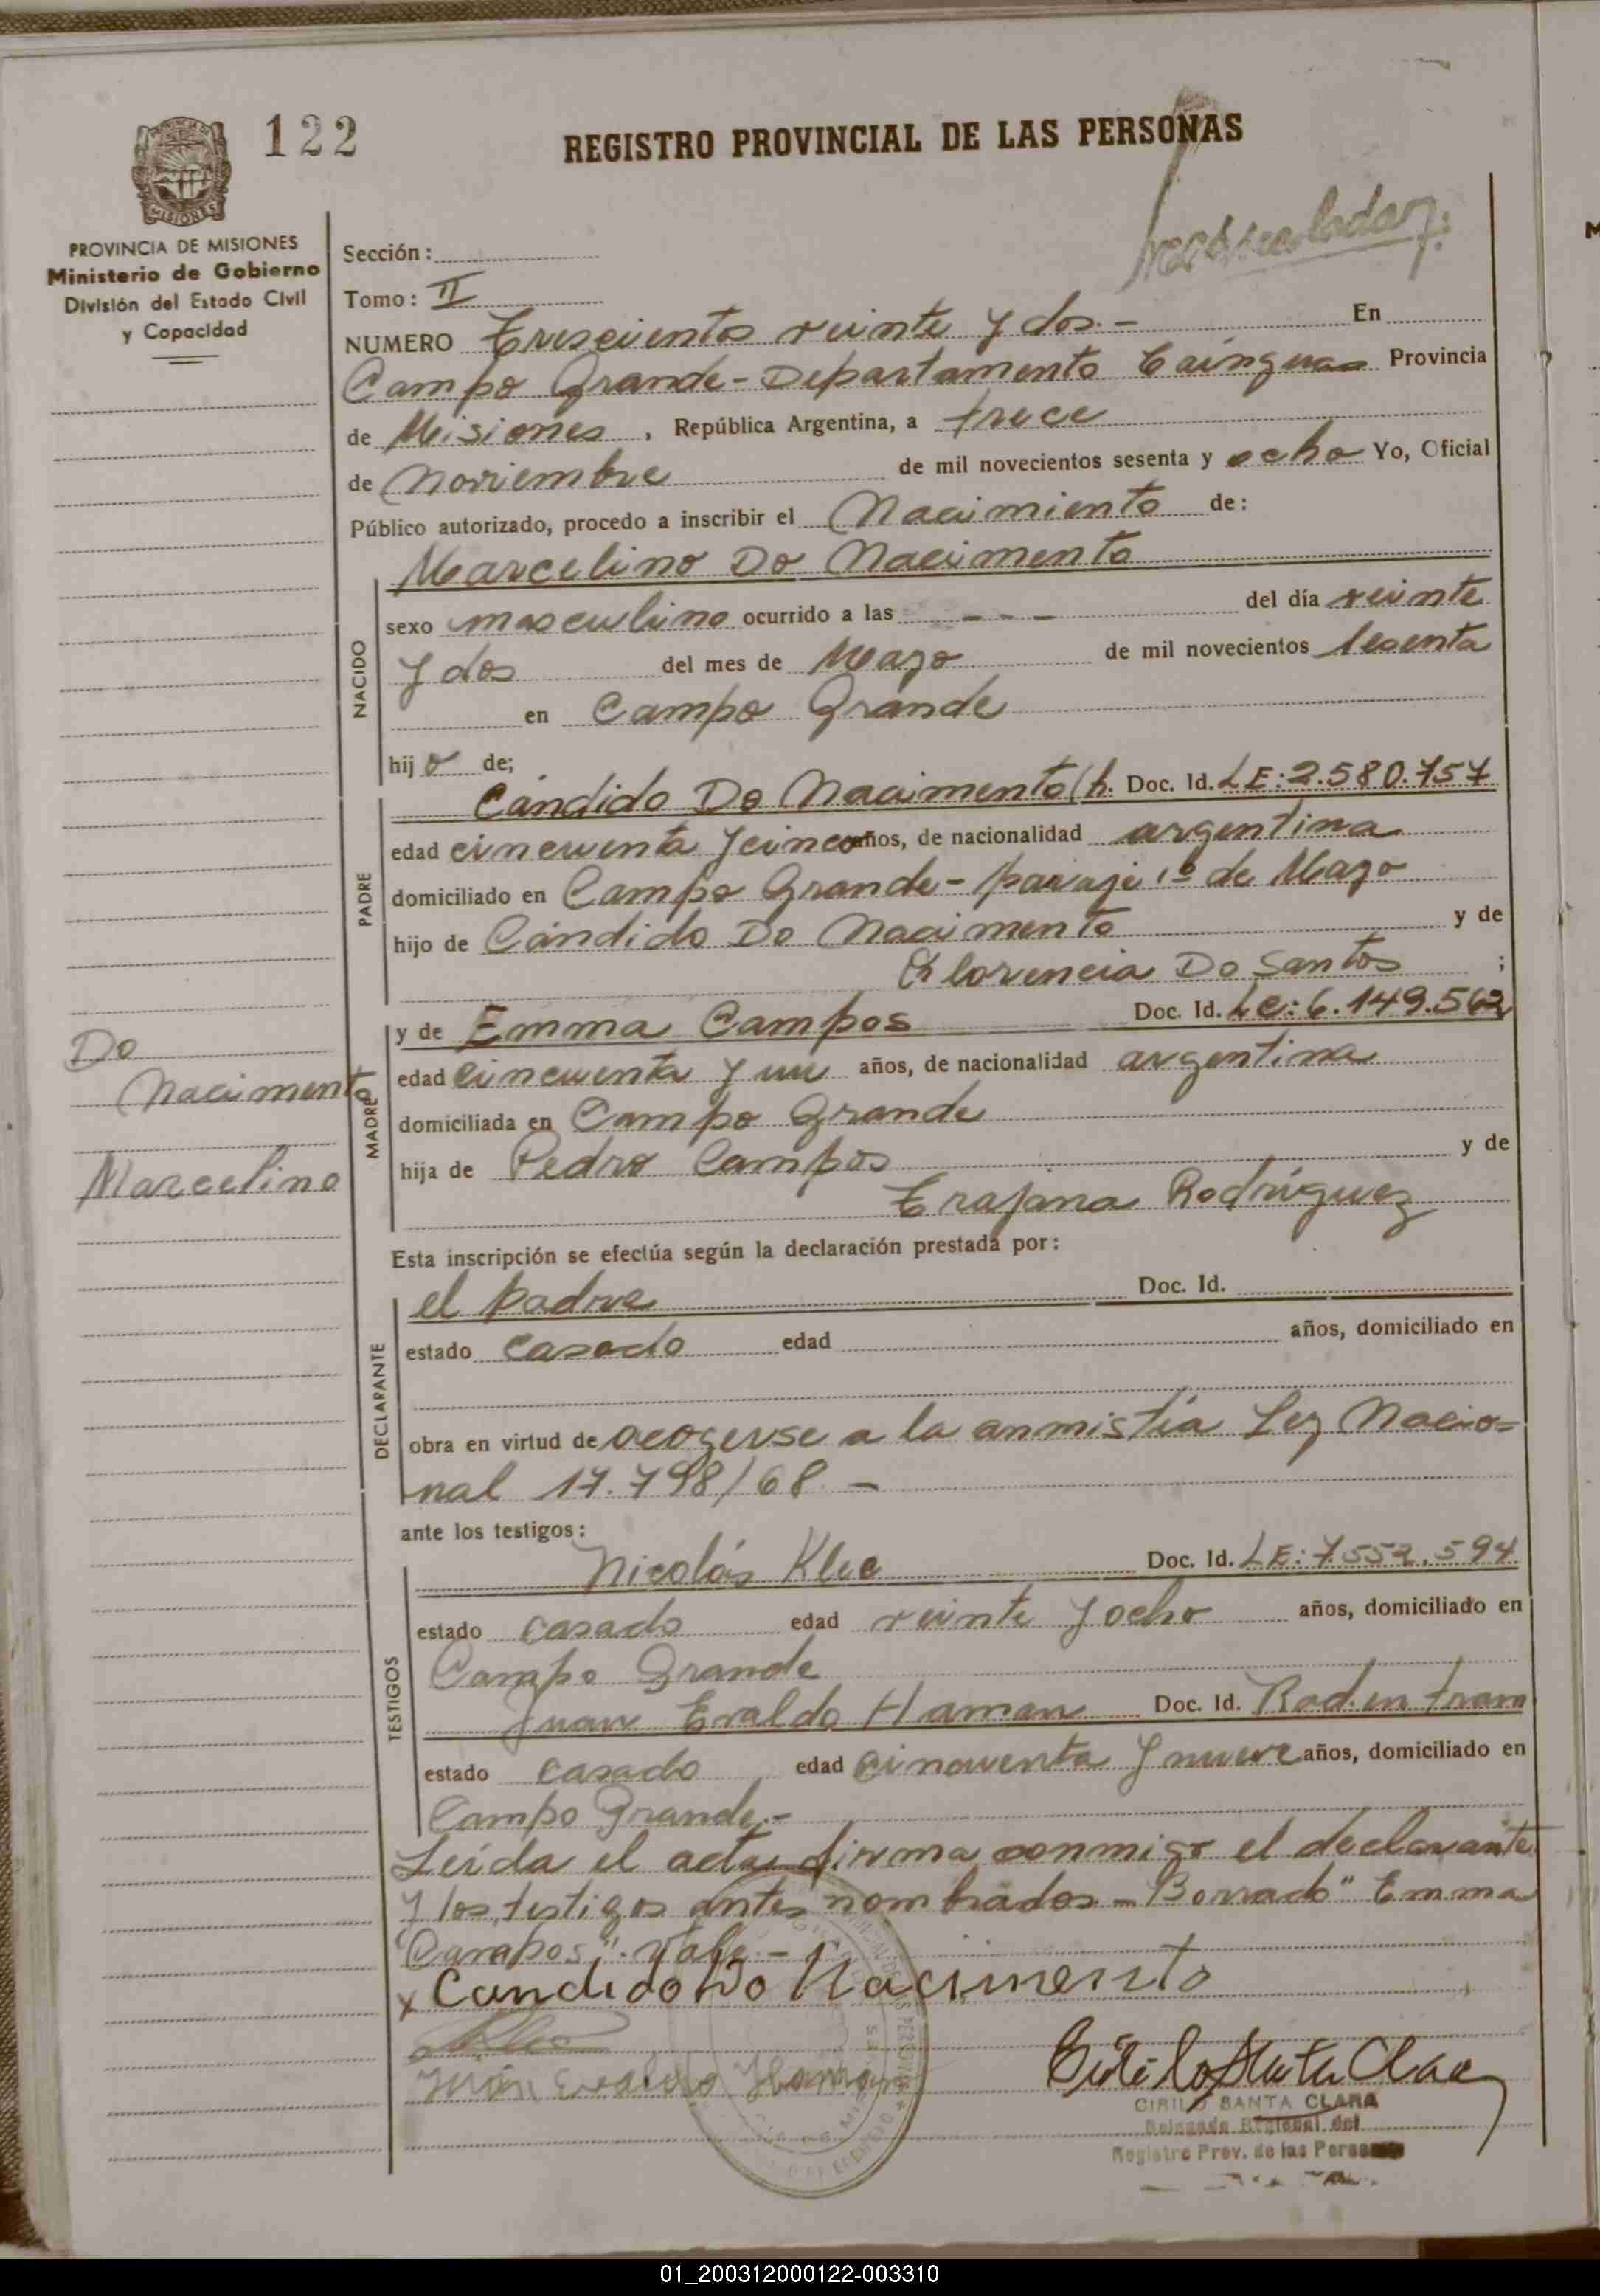 122
REGISTRO PROVINCIAL DE LAS PERSONAS
PROVINCIA DE MISIONES
Ministerio de Gobierno
División del Estado Civil
y Capacidad
Sección:
Tomo: II
NUMERO Trescientos veinte y dos.- En
Campo Grande - Departamento Cainguas Provincia
de Misiones, República Argentina, a trece
de Noviembre de mil novecientos sesenta y ocho Yo, Oficial
Público autorizado, procedo a inscribir el Nacimiento de:
Marcelino Do Nacimento
NACIDO
sexo masculino ocurrido a las - - - del día veinte
y dos del mes de Mayo de mil novecientos sesenta
en Campo Grande
hijo de;
PADRE
Cándido Do Nacimento (h. Doc. Id. LE: 2.580.757
edad cincuenta y cinco años, de nacionalidad argentina
domiciliado en Campo Grande - paraje 1º de Mayo
hijo de Cándido Do Nacimento y de
Florencia Do Santos ;
MADRE
y de Emma Campos Doc. Id. Lc: 6.149.562
edad cincuenta y un años, de nacionalidad argentina
domiciliada en Campo Grande
hija de Pedro Campos y de
Trajana Rodríguez
Do
Nacimento
Marcelino
Esta inscripción se efectúa según la declaración prestada por:
DECLARANTE
el padre Doc. Id.
estado casado edad años, domiciliado en
obra en virtud de acogerse a la anmistía Ley Nacio=
nal 17.798/68 -
ante los testigos:
TESTIGOS
Nicolás Klee Doc. Id. LE: 7.552.594
estado casado edad veinte y ocho años, domiciliado en
Campo Grande
Juan Evaldo Haman Doc. Id. Rad. en tram
estado casado edad cincuenta y nueve años, domiciliado en
Campo Grande.-
Leída el acta firma conmigo el declarante
y los testigos antes nombrados - Borrado" Emma
Campos". Vale.-
x Candido Do Nacimento
Juan Evaldo Haman
CIRILO SANTA CLARA
Delegado Regional del
Registro Prov. de las Personas
01_200312000122-003310